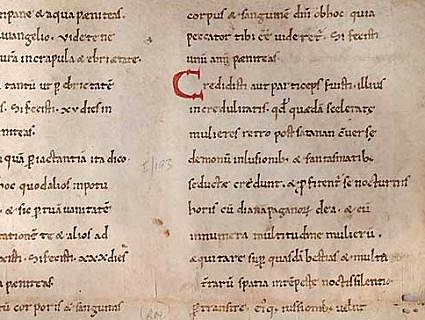 pane & aqua peniteas.
uuangelio. Vide te ne
in crapula & ebrietate.
tantū ut ꝑ ebrietatē
s. Si fecisti. xv dies in
niteas.
qua ꝑ iactantiā ita dico.
hoc quod alios in potu
& sic ꝑ tuā uanitatē
tatione te & alios ad
xisti. Si fecisti. xxx dies
peniteas.
tū corporis & sanguinis
corpus & sanguinē dn̄i ob hoc quia
peccator tibi eē̄ uideret᷑. Si fecisti
unū annū peniteas.
Credidisti aut particeps fuisti. illius
incredulitatis. qđ quędā sceleratę
mulieres retro post satanan c̄uerse
demonū inlusionib; & fantasmatib;
seductę credunt. & ꝓfitent᷑ se nocturnis
horis cū diana paganoꝝ dea. & cū
innumera multitudine mulierū.
equitare suꝑ quasdā bestias & multa
t̄rarū spatia intēpestę noctis silentio
ꝑtransire. eiq; iussionib; uelut